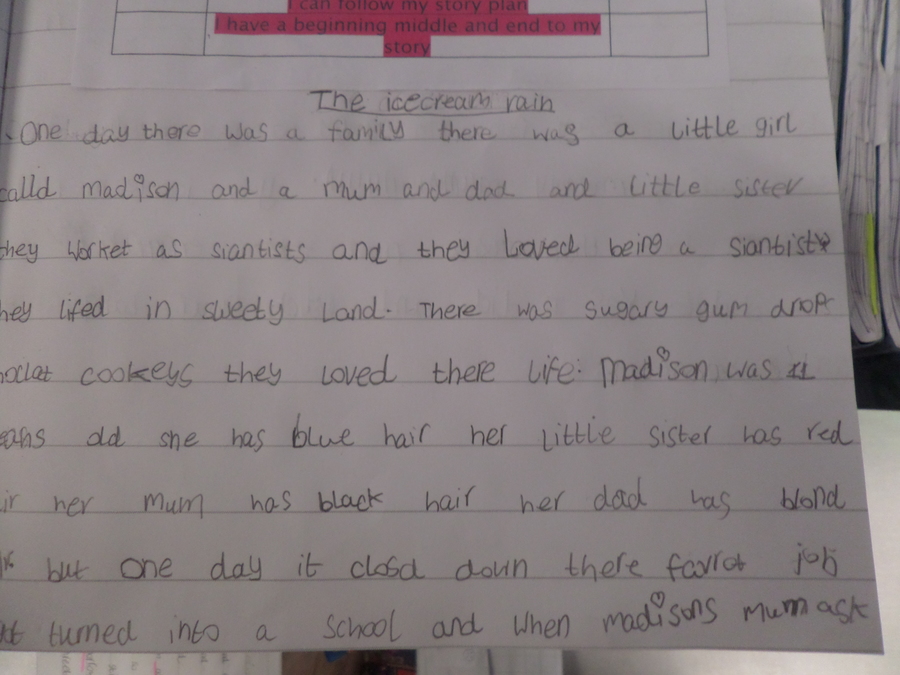 I can follow my story plan
I have a beginning middle and end to my
story
The icecream rain
One day there was a family there was a little girl
calld madison and a mum and dad and little sister
they worket as siantists and they loved being a siantist
hey lifed in sweety Land. There was sugary gum drop
oclat cookeys they loved there life. madison was 11
eahs old she has blue hair her little sister has red
ir her mum has black hair her dad has blond
but one day it closd down there favrot job
turned into a school and when madisons mum ask